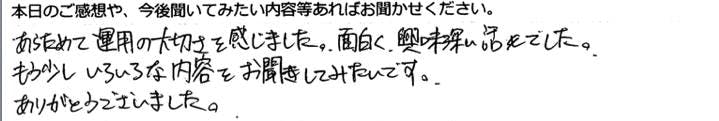 本日のご感想や、今後聞いてみたい内容等あればお聞かせください。
あらためて運用の大切さを感じました。面白く、興味深い話でした。
もう少しいろいろな内容をお聞きしてみたいです。
ありがとうございました。